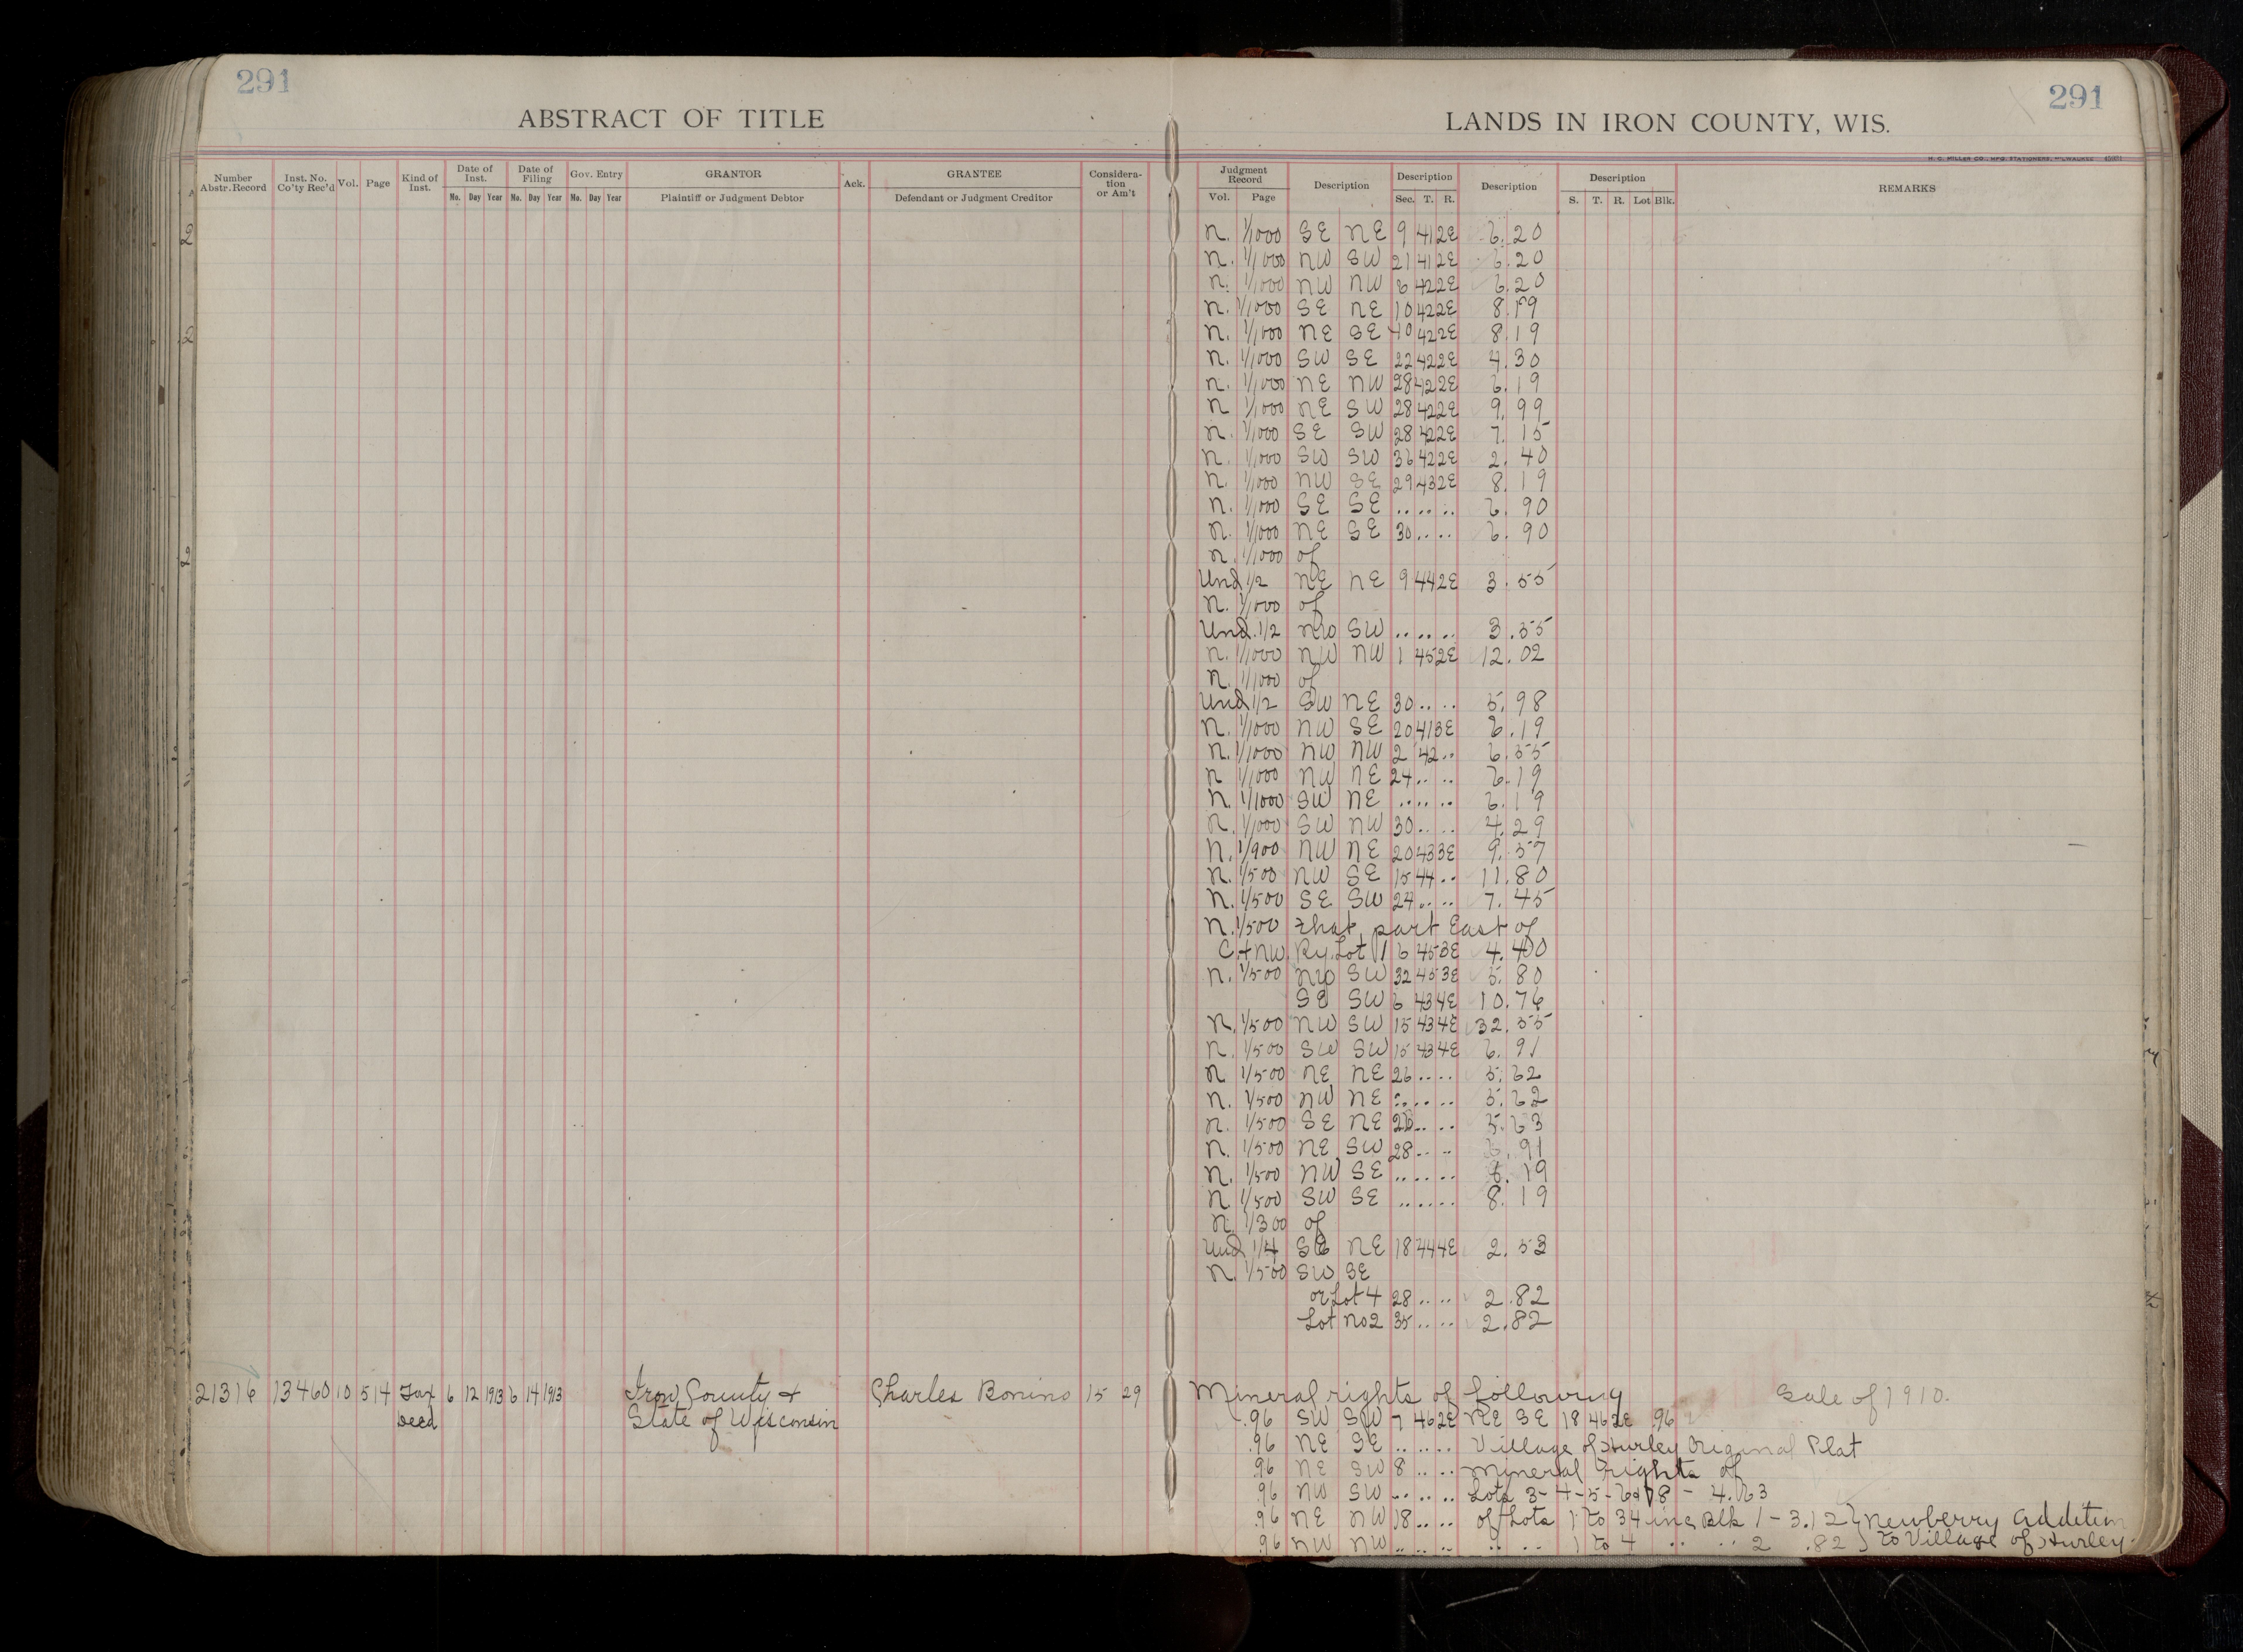 291
291
ABSTRACT OF TITLE
LANDS IN IRON COUNTY, WIS.
H. C. MILLER CO., MFG. STATIONERS, MILWAUKEE
Number Abstr. Record Inst. No. Co'ty Rec'd Vol. Page Kind of Inst. Date of Inst. Mo. Day Year Date of Filing Mo. Day Year Gov. Entry Mo. Day Year GRANTOR Plaintiff or Judgment Debtor Ack. GRANTEE Defendant or Judgment Creditor Consideration or Am't
Judgment Record Vol. Page Description Description Sec. T. R. Description Description S. T. R. Lot Blk. REMARKS
N. 1/1000 SE NE 9 41 2E 6.20
N. 1/1000 NW SW 21 41 2E 6.20
N. 1/1000 NW NW 6 42 2E 6.20
N. 1/1000 SE NE 10 42 2E 8.19
N. 1/1000 NE SE 10 42 2E 8.19
N. 1/1000 SW SE 22 42 2E 4.30
N. 1/1000 NE NW 28 42 2E 6.19
N 1/1000 NE SW 28 42 2E 9.99
N. 1/1000 SE SW 28 42 2E 7.15
N. 1/1000 SW SW 36 42 2E 2.40
N. 1/1000 NW SE 29 43 2E 8.19
N. 1/1000 SE SE .. .. .. 6.90
N. 1/1000 NE SE 30 .. .. 6.90
N. 1/1000 of
Und 1/2 NE NE 9 44 2E 3.55
N. 1/1000 of
Und. 1/2 NW SW .. .. .. 3.55
N. 1/1000 NW NW 1 45 2E 12.02
N. 1/1000 of
Und 1/2 SW NE 30 .. .. 5.98
N. 1/1000 NW SE 20 41 3E 6.19
N. 1/1000 NW NW 2 42 .. 6.55
N 1/1000 NW NE 24 .. .. 6.19
N. 1/1000 SW NE .. .. .. 6.19
N. 1/1000 SW NW 30 .. .. 4.29
N. 1/900 NW NE 20 43 3E 9.57
N. 1/500 NW SE 15 44 .. 11.80
N. 1/500 SE SW 24 .. .. 7.45
N. 1/500 that part East of
C + NW. Ry. Lot 1 6 45 3E 4.40
N. 1/500 NW SW 32 45 3E 5.80
SE SW 6 43 4E 10.76
N. 1/500 NW SW 15 43 4E 32.55
N. 1/500 SW SW 15 43 4E 6.91
N 1/500 NE NE 26 .. .. 5.62
N. 1/500 NW NE .. .. .. 5.62
N. 1/500 SE NE 26 .. .. 5.63
N. 1/500 NE SW 28 .. .. 6.91
N. 1/500 NW SE .. .. .. 8.19
N. 1/500 SW SE .. .. .. 8.19
N. 1/300 of
Und 1/4 SE NE 18 44 4E 2.53
N. 1/500 SW SE
or Lot 4 28 .. .. 2.82
Lot No 2 35 .. .. 2.82
21316 13460 10 514 Tax 6 12 1913 6 14 1913 Iron County + Charles Bonino 15 29 Mineral rights of following Sale of 1910.
Deed State of Wisconsin .96 SW SW 7 46 2E NE SE 18 46 2E .96
.96 NE SE .. .. .. Village of Hurley Original Plat
.96 NE SW 8 .. .. Mineral rights of
.96 NW SW .. .. .. Lots 3-4-5-6 + 8 - 4.63
.96 NE NW 18 .. .. of Lots 1 to 34 inc Blk 1 - 3.12 } Newberry Addition
.96 NW NW .. .. .. .. .. 1 to 4 .. .. 2 .82 } to Village of Hurley.